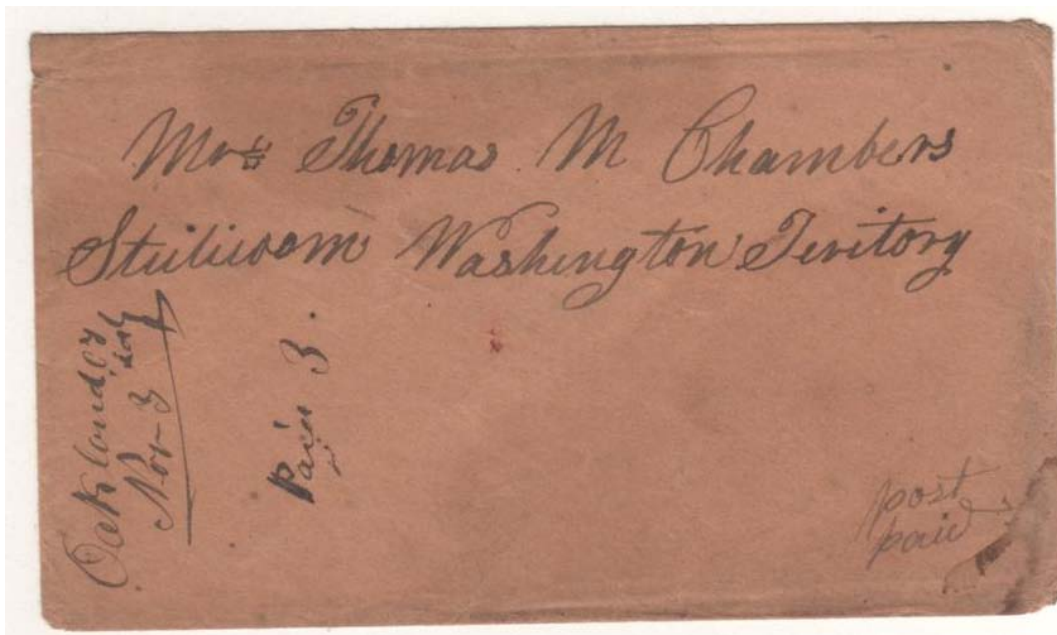 Mrs Thomas M Chambers
Steilicoom Washington Teritory
Oakland OT
Nov 3
Paid 3.
post
paid